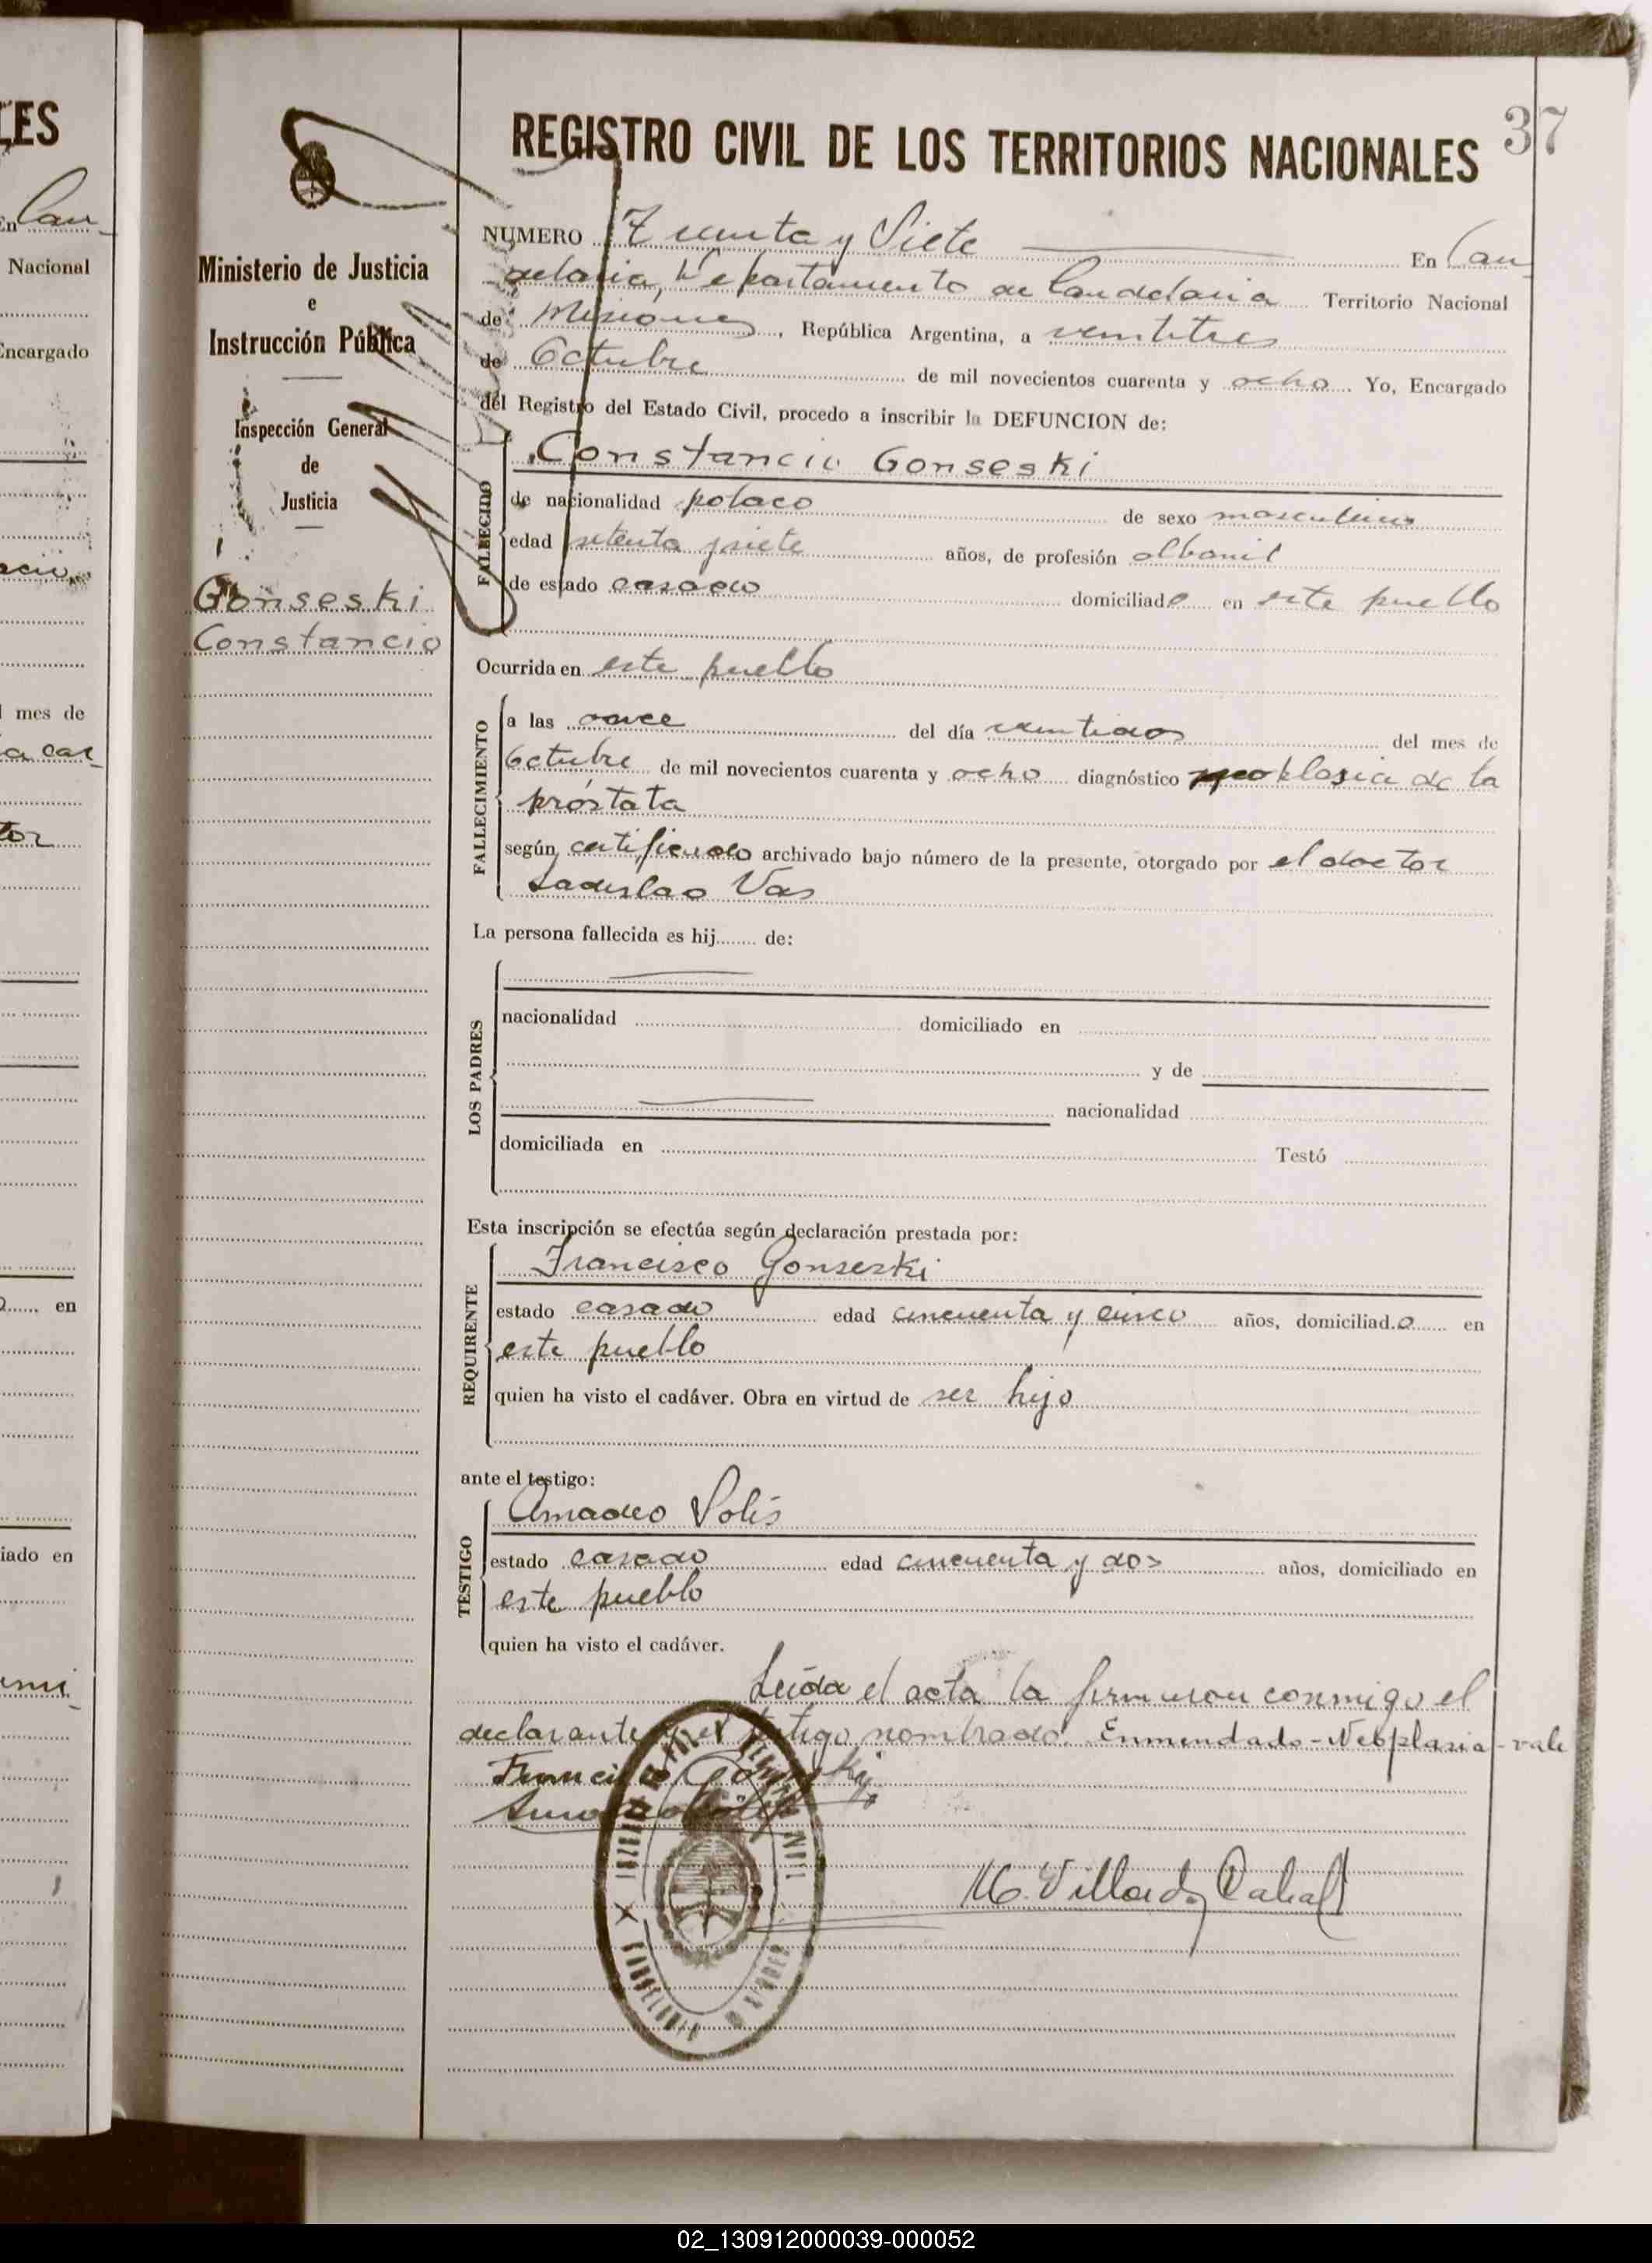 LES
En Can
Nacional
Encargado
mes de
a cas
tor
en
iado en
37
REGISTRO CIVIL DE LOS TERRITORIOS NACIONALES
Ministerio de Justicia
e
Instrucción Pública
Inspección General
de
Justicia
Gonseski
Constancio
NUMERO Treinta y Siete En Can
delaria, Departamento de Candelaria Territorio Nacional
de Misiones, República Argentina, a veintitres
de Octubre de mil novecientos cuarenta y ocho. Yo, Encargado
del Registro del Estado Civil, procedo a inscribir la DEFUNCION de:
FALLECIDO
Constancio Gonseski
de nacionalidad polaco de sexo masculino
edad setenta y siete años, de profesión albanil
de estado casado domiciliado en este pueblo
Ocurrida en este pueblo
FALLECIMIENTO
a las once del día veintidos del mes de
Octubre de mil novecientos cuarenta y ocho diagnóstico neoplasia de la
próstata
según certificado archivado bajo número de la presente, otorgado por el doctor
Ladislao Vas
La persona fallecida es hij........ de:
LOS PADRES
nacionalidad domiciliado en
y de
nacionalidad
domiciliada en Testó
Esta inscripción se efectúa según declaración prestada por:
REQUIRENTE
Francisco Gonseski
estado casado edad cincuenta y cinco años, domiciliado en
este pueblo
quien ha visto el cadáver. Obra en virtud de ser hijo
ante el testigo:
TESTIGO
Amadeo Solís
estado casado edad cincuenta y dos años, domiciliado en
este pueblo
quien ha visto el cadáver.
Leída el acta la firmaron conmigo el
declarante y el testigo nombrado. Enmendado-Neoplasia-vale
02_130912000039-000052